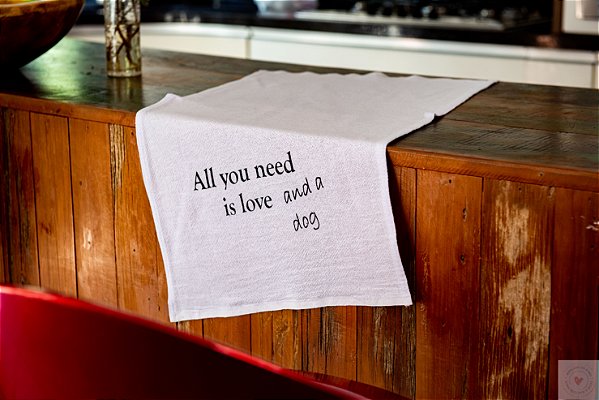 All you need
is love and a
dog